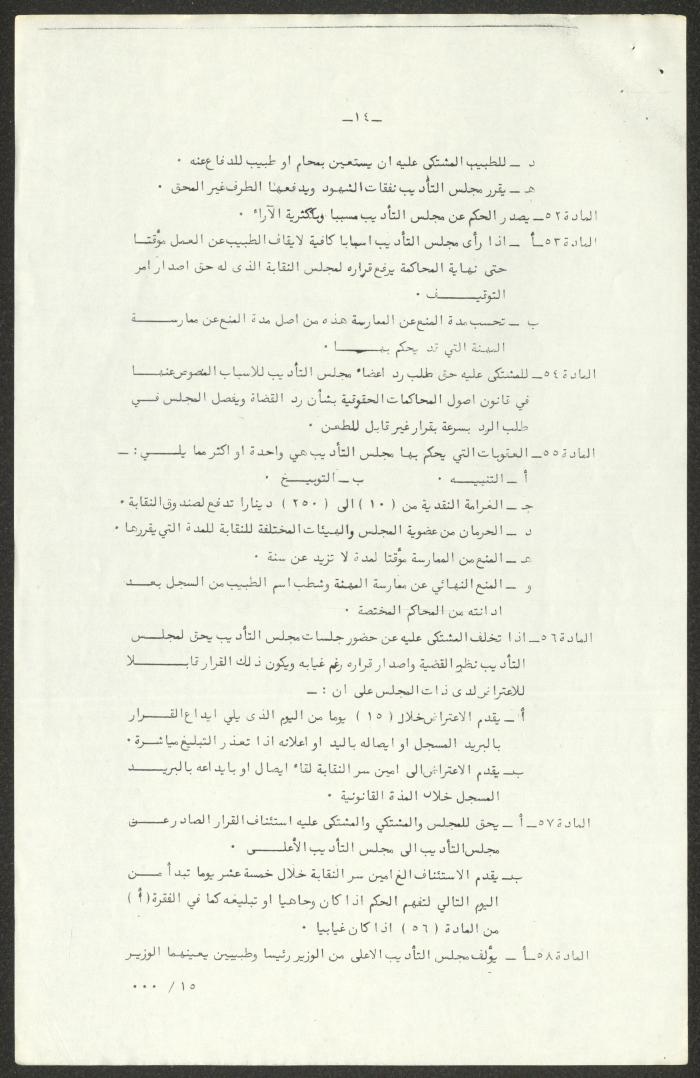 -١٤-
د - للطبيب المشتكى عليه ان يستعين بمحام او طبيب للدفاع عنه .
هـ - يقرر مجلس التأديب نفقات الشهود ويدفعها الطرف غير المحق .
المادة ٥٢ - يصدر الحكم عن مجلس التأديب مسببا وباكثرية الآراء .
المادة ٥٣ - أ - اذا رأى مجلس التأديب اسبابا كافية لايقاف الطبيب عن العمل مؤقتا
حتى نهاية المحاكمة يرفع قراره لمجلس النقابة الذى له حق اصدار امر
التوقيف .
ب - تحسب مدة المنع عن الممارسة هذه من اصل مدة المنع عن ممارسة
المهنة التي قد يحكم بها .
المادة ٥٤ - للمشتكى عليه حق طلب رد اعضاء مجلس التأديب للاسباب المنصوص عنها
في قانون اصول المحاكمات الحقوقية بشأن رد القضاة ويفصل المجلس في
طلب الرد بسرعة بقرار غير قابل للطعن .
المادة ٥٥ - العقوبات التي يحكم بها مجلس التأديب هي واحدة او اكثر مما يلي : -
أ - التنبيه . ب - التوبيخ .
جـ - الغرامة النقدية من ( ١٠ ) الى ( ٢٥٠ ) دينارا تدفع لصندوق النقابة .
د - الحرمان من عضوية المجلس والهيئات المختلفة للنقابة للمدة التي يقررها .
هـ - المنع من الممارسة مؤقتا لمدة لا تزيد عن سنة .
و - المنع النهائي عن ممارسة المهنة وشطب اسم الطبيب من السجل بعد
ادانته من المحاكم المختصة .
المادة ٥٦ - اذا تخلف المشتكى عليه عن حضور جلسات مجلس التأديب يحق لمجلس
التأديب نظر القضية واصدار قراره رغم غيابه ويكون ذلك القرار قابلا
للاعتراض لدى ذات المجلس على ان : -
أ - يقدم الاعتراض خلال ( ١٥ ) يوما من اليوم الذى يلي ايداع القرار
بالبريد المسجل او ايصاله باليد او اعلانه اذا تعذر التبليغ مباشرة .
ب - يقدم الاعتراض الى امين سر النقابة لقاء ايصال او بايداعه بالبريد
المسجل خلال المدة القانونية .
المادة ٥٧ - أ - يحق للمجلس والمشتكي والمشتكى عليه استئناف القرار الصادر عن
مجلس التأديب الى مجلس التأديب الأعلى .
ب - يقدم الاستئناف الى امين سر النقابة خلال خمسة عشر يوما تبدأ من
اليوم التالي لتفهم الحكم اذا كان وجاهيا او تبليغه كما في الفقرة ( أ )
من المادة ( ٥٦ ) اذا كان غيابيا .
المادة ٥٨ - أ - يؤلف مجلس التأديب الاعلى من الوزير رئيسا وطبيبين يعينهما الوزير
١٥ / ...